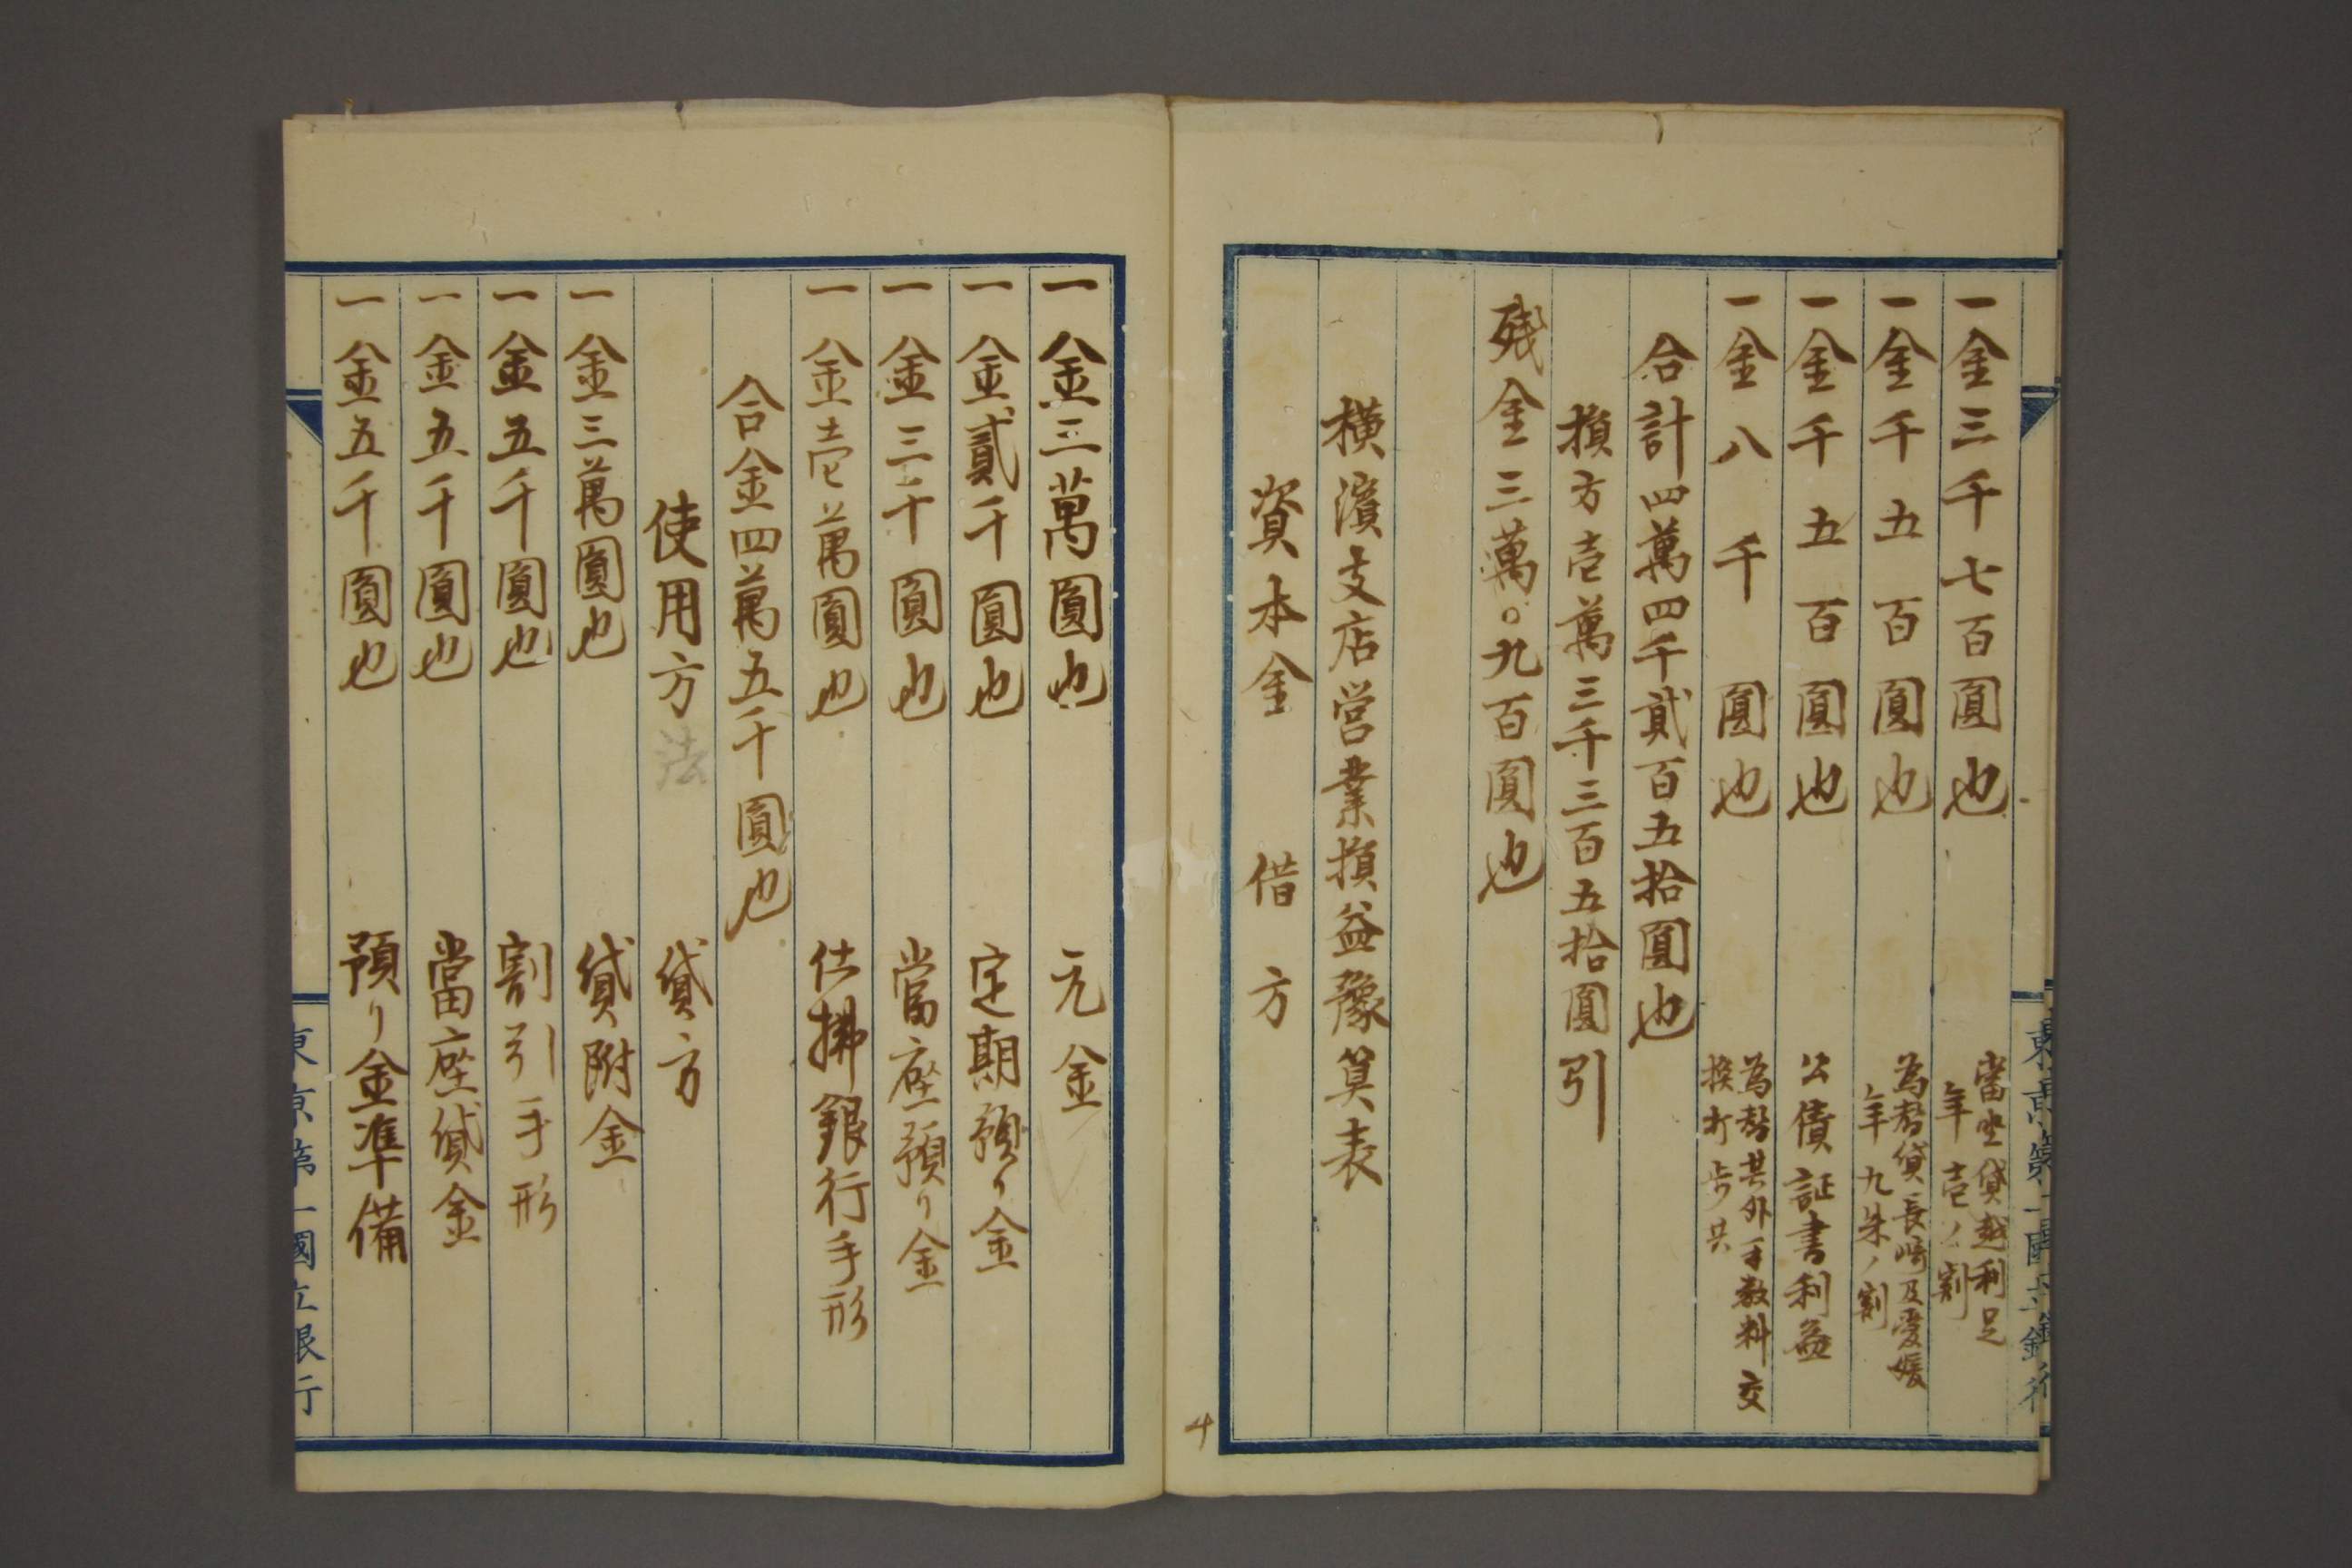 一金三千七百圓也 當坐貸越利足
年壱ノ割
一金千五百圓也 為替貸長崎及愛媛
年九朱ノ割
一金千五百圓也 公債証書利益
一金八千圓也 為替其外手数料交
換打歩共
合計四萬四千貳百五拾圓也
損方壱萬三千三百五拾圓引
残金三萬〇九百圓也
横濱支店営業損益豫算表
資本金 借方
4
一金三萬圓也 元金
一金貳千圓也 定期預り金
一金三千圓也 當座預り金
一金壱萬圓也 仕拂銀行手形
合金四萬五千圓也
使用方法 貸方
一金三萬圓也 貸附金
一金五千圓也 割引手形
一金五千圓也 當座貸金
一金五千圓也 預り金準備
東京第一國立銀行
東京第一國立銀行